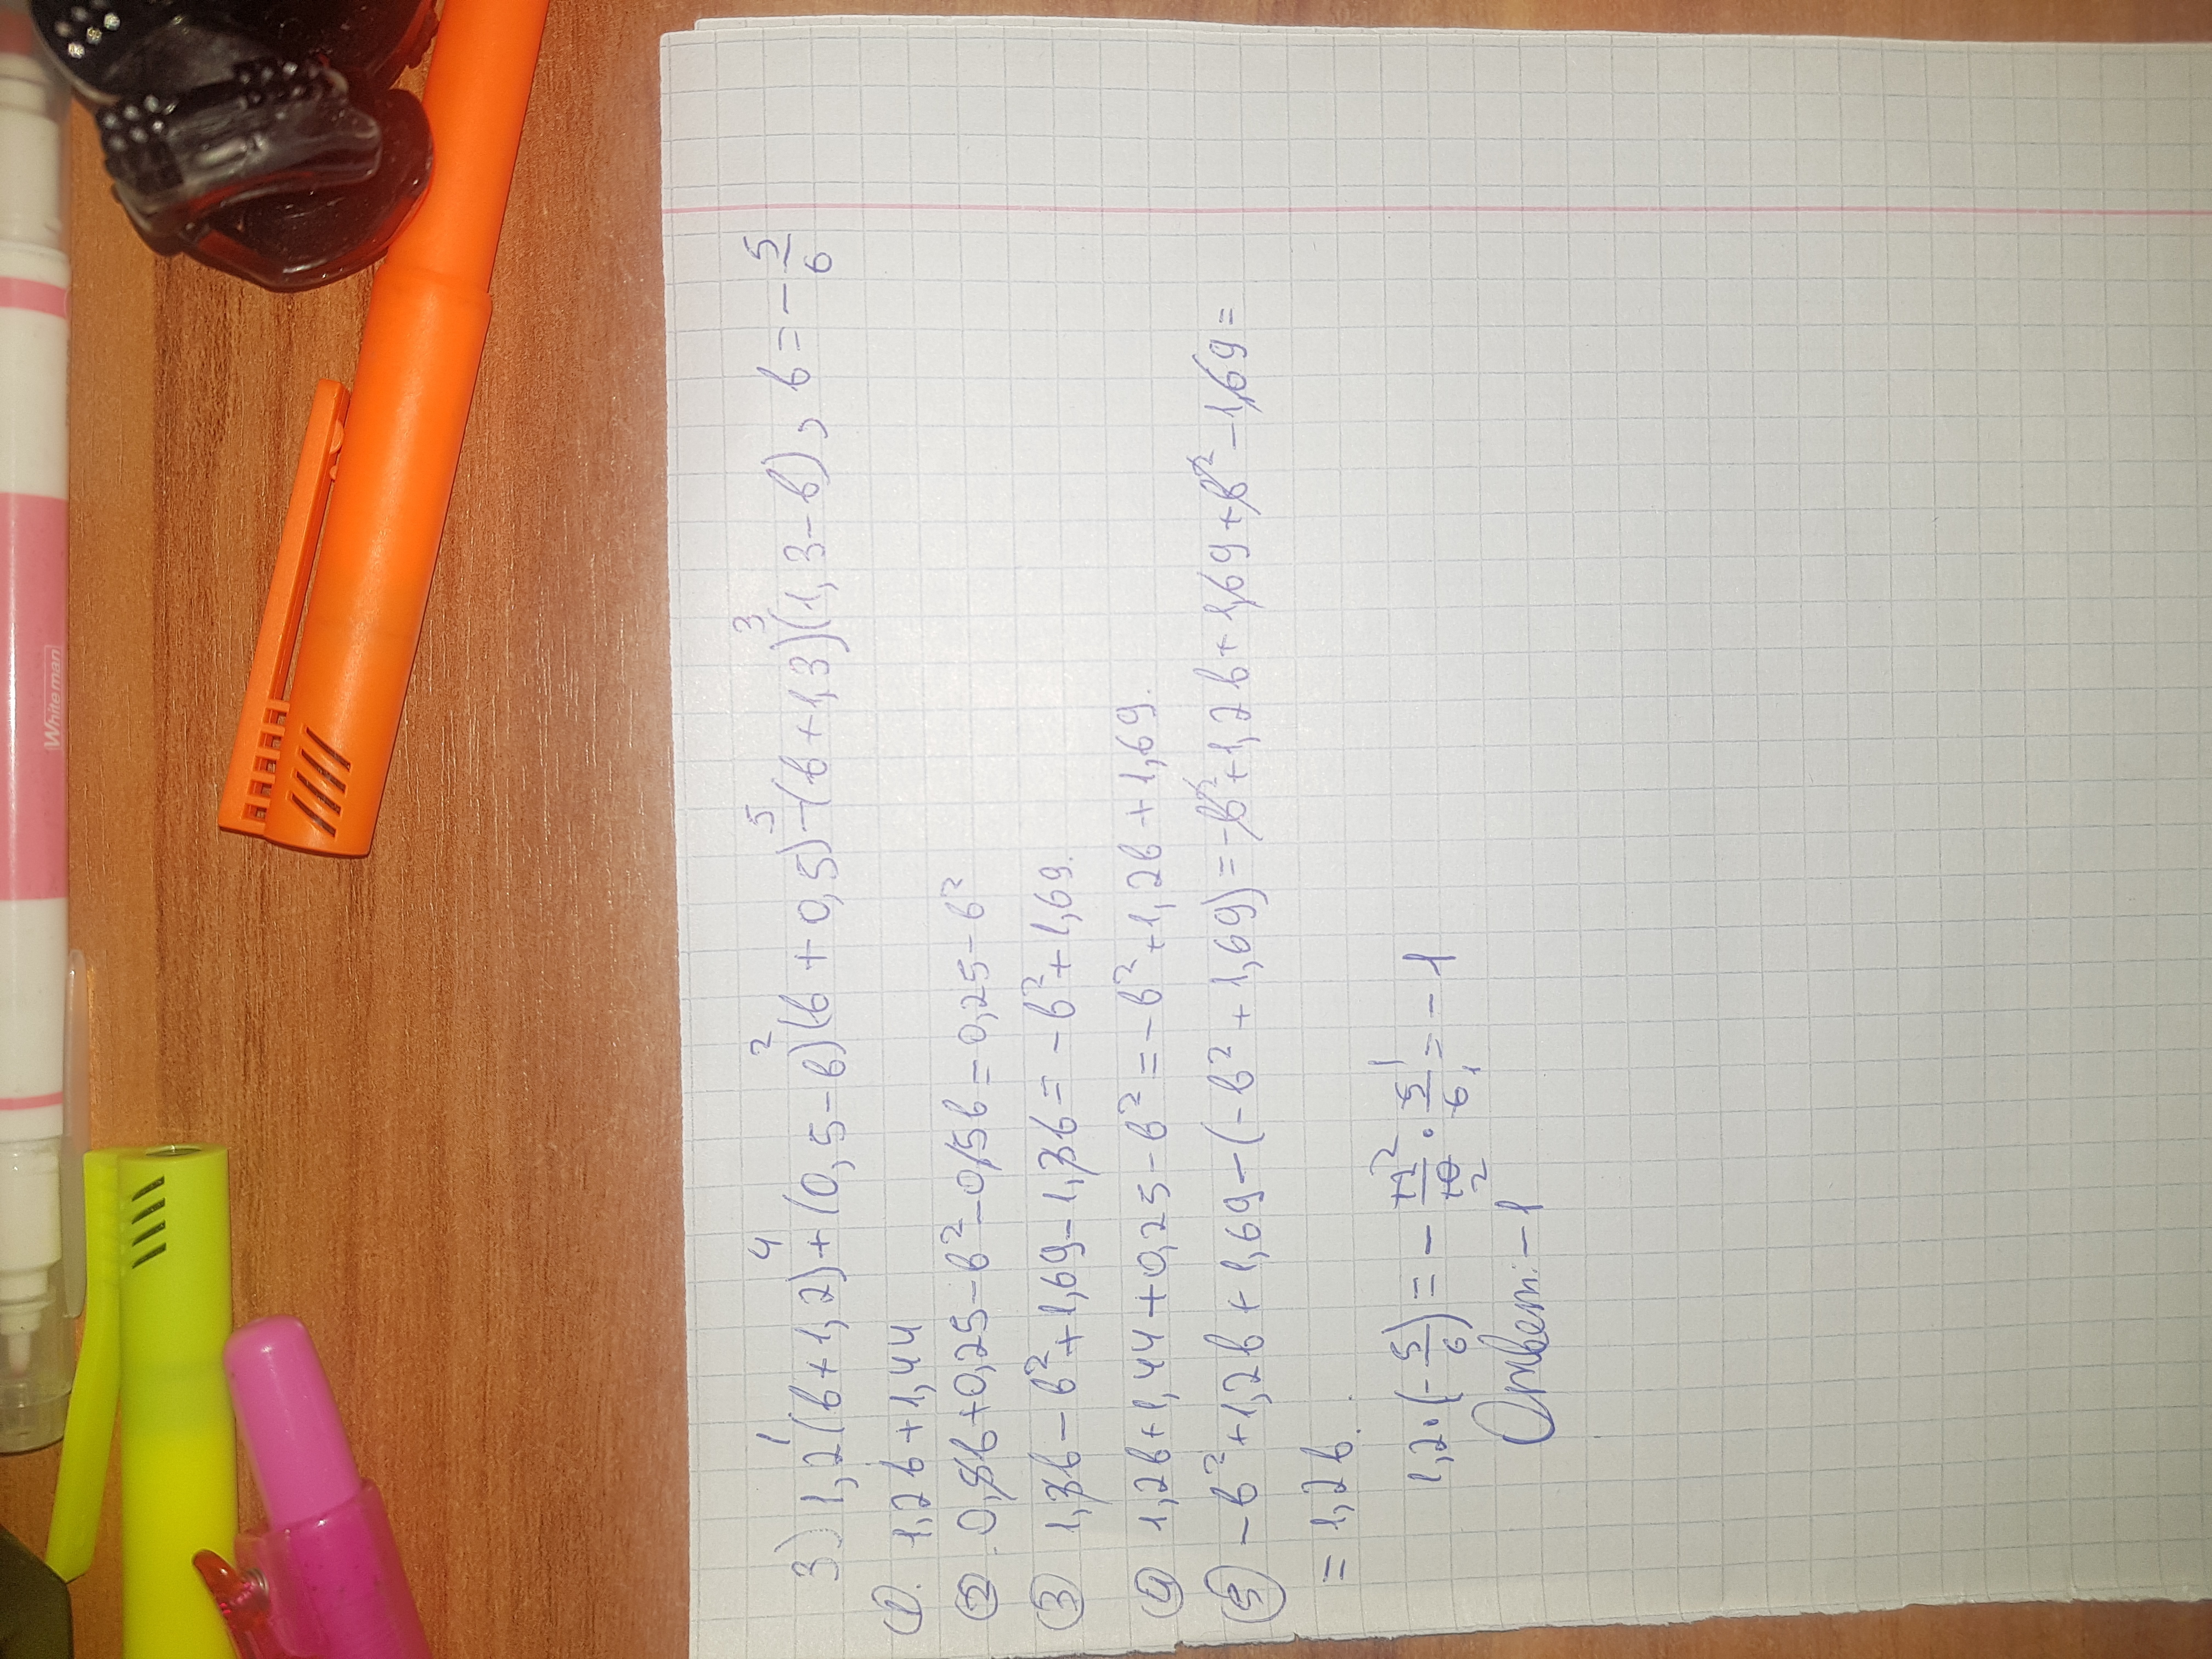 3) 1,2(b+1,2)+(0,5-b)(b+0,5)-(b+1,3)(1,3-b), b=-5/6
1 4 2 5 3
① 1,2b+1,44
② 0,5b+0,25-b²-0,5b=0,25-b²
③ 1,3b-b²+1,69-1,3b=-b²+1,69.
④ 1,2b+1,44+0,25-b²=-b²+1,2b+1,69.
⑤ -b²+1,2b+1,69-(-b²+1,69)=-b²+1,2b+1,69+b²-1,69=
=1,2b.
1,2·(-5/6)=-12/10·5/6=-1
Ответ: -1
White man